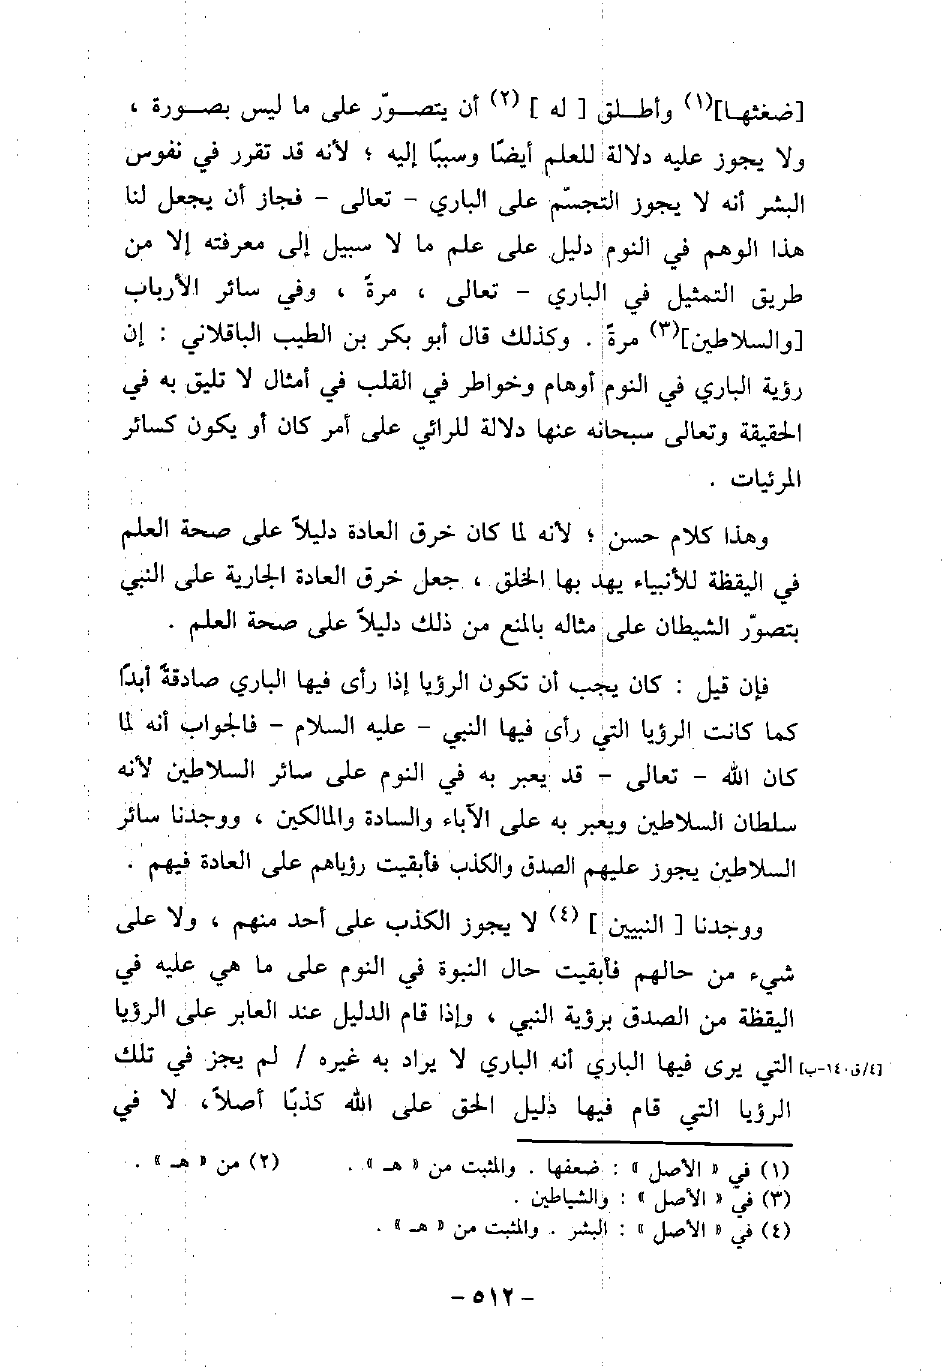 [ضغثها](١) وأطلق [ له ] (٢) أن يتصوّر على ما ليس بصورة ،
ولا يجوز عليه دلالة للعلم أيضًا وسببًا إليه ؛ لأنه قد تقرر في نفوس
البشر أنه لا يجوز التجسّم على الباري - تعالى - فجاز أن يجعل لنا
هذا الوهم في النوم دليل على علم ما لا سبيل إلى معرفته إلا من
طريق التمثيل في الباري - تعالى ، مرةً ، وفي سائر الأرباب
[والسلاطين](٣) مرةً . وكذلك قال أبو بكر بن الطيب الباقلاني : إن
رؤية الباري في النوم أوهام وخواطر في القلب في أمثال لا تليق به في
الحقيقة وتعالى سبحانه عنها دلالة للرائي على أمر كان أو يكون كسائر
المرئيات .
وهذا كلام حسن ؛ لأنه لما كان خرق العادة دليلاً على صحة العلم
في اليقظة للأنبياء يهد بها الخلق ، جعل خرق العادة الجارية على النبي
بتصوّر الشيطان على مثاله بالمنع من ذلك دليلاً على صحة العلم .
فإن قيل : كان يجب أن تكون الرؤيا إذا رأى فيها الباري صادقةً أبدًا
كما كانت الرؤيا التي رأى فيها النبي - عليه السلام - فالجواب أنه لما
كان الله - تعالى - قد يعبر به في النوم على سائر السلاطين لأنه
سلطان السلاطين ويعبر به على الآباء والسادة والمالكين ، ووجدنا سائر
السلاطين يجوز عليهم الصدق والكذب فأبقيت رؤياهم على العادة فيهم .
ووجدنا [ النبيين ] (٤) لا يجوز الكذب على أحد منهم ، ولا على
شيء من حالهم فأبقيت حال النبوة في النوم على ما هي عليه في
اليقظة من الصدق برؤية النبي ، وإذا قام الدليل عند العابر على الرؤيا
[٤/ق١٤٠-ب] التي يرى فيها الباري أنه الباري لا يراد به غيره / لم يجز في تلك
الرؤيا التي قام فيها دليل الحق على الله كذبًا أصلاً، لا في
(١) في « الأصل » : ضعفها . والمثبت من « هـ » . (٢) من « هـ » .
(٣) في « الأصل » : والشياطين .
(٤) في « الأصل » : البشر . والمثبت من « هـ » .
- ٥١٢ -